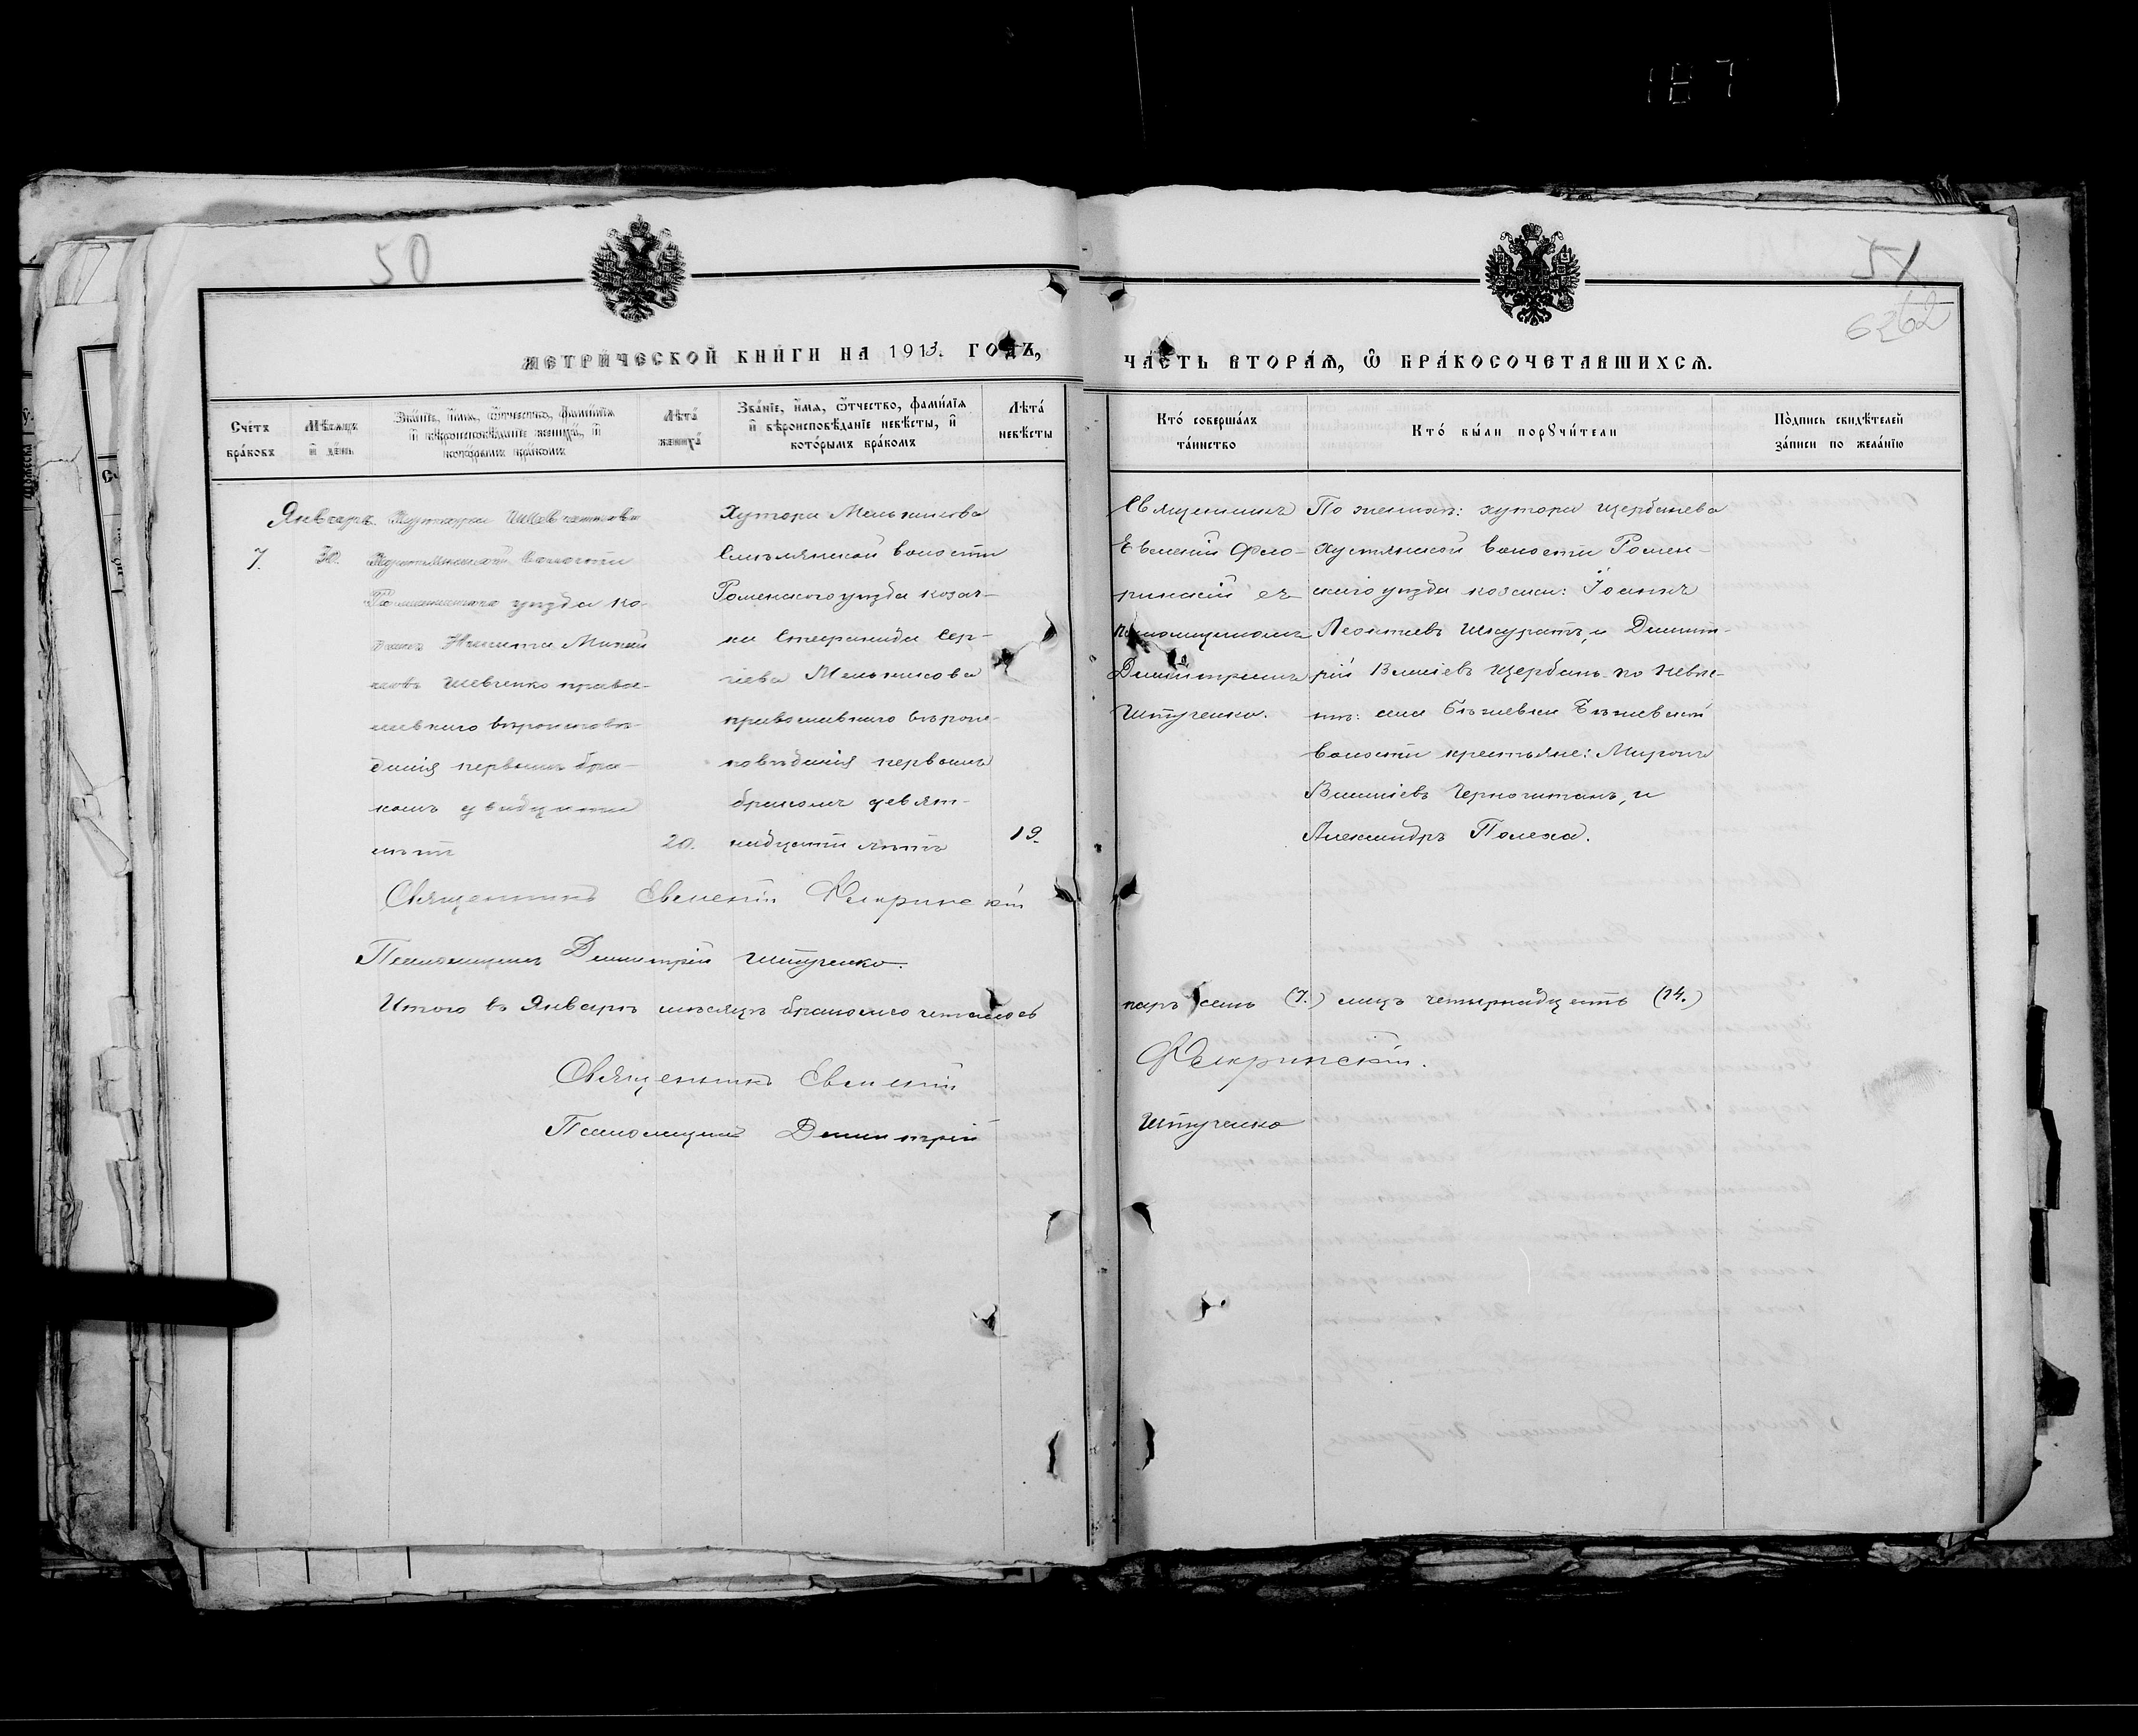 187
50
51
62
МЕТРИЧЕСКОЙ КНИГИ НА 1913. ГОДЪ,
ЧАСТЬ ВТОРАЯ, Ѡ БРАКОСОЧЕТАВШИХСЯ.
Счетъ браковъ
Мѣсяцъ и день
Званіе, имя, отчество, фамилія и вѣроисповѣданіе жениха, и которымъ бракомъ
Лѣта жениха
Званіе, имя, отчество, фамилія и вѣроисповѣданіе невѣсты, и которымъ бракомъ
Лѣта невѣсты
Кто совершалъ таинство
Кто были поручители
Подпись свидѣтелей записи по желанію
Январь.
7.
30.
Хутора Шевченкова
Хустянской волости
Роменского уѣзда ко-
закъ Никита
Шевченко правос-
лавнаго вѣроисповѣ-
данія первымъ бра-
комъ двадцати
лѣтъ
20.
Хутора Мельникова
Смѣлянской волости
Роменского уѣзда козач-
ка Стефанида Сер-
гіева Мельникова
православнаго вѣроис-
повѣданія первымъ
бракомъ девят-
надцати лѣтъ
19.
Священникъ
Евгеній Фло-
ринскій съ
псаломщикомъ
Димитріемъ
Штученко.
По женихѣ: хутора Щербанева
Хустянской волости Ромен-
скаго уѣзда козаки: Іоаннъ
Леонтіевъ Шкуратъ, и Димит-
рій Щербань. по невѣс-
тѣ: волости крестьяне: Миронъ
Александръ Полеха.
Священникъ Евгеній Флоринскій
Псаломщикъ Димитрій Штученко.
Итого въ Январѣ мѣсяцѣ бракосочеталось
паръ семь (7.) лицъ четырнадцать (14.)
Священникъ Евгеній
Флоринскій.
Псаломщикъ Димитрій
Штученко